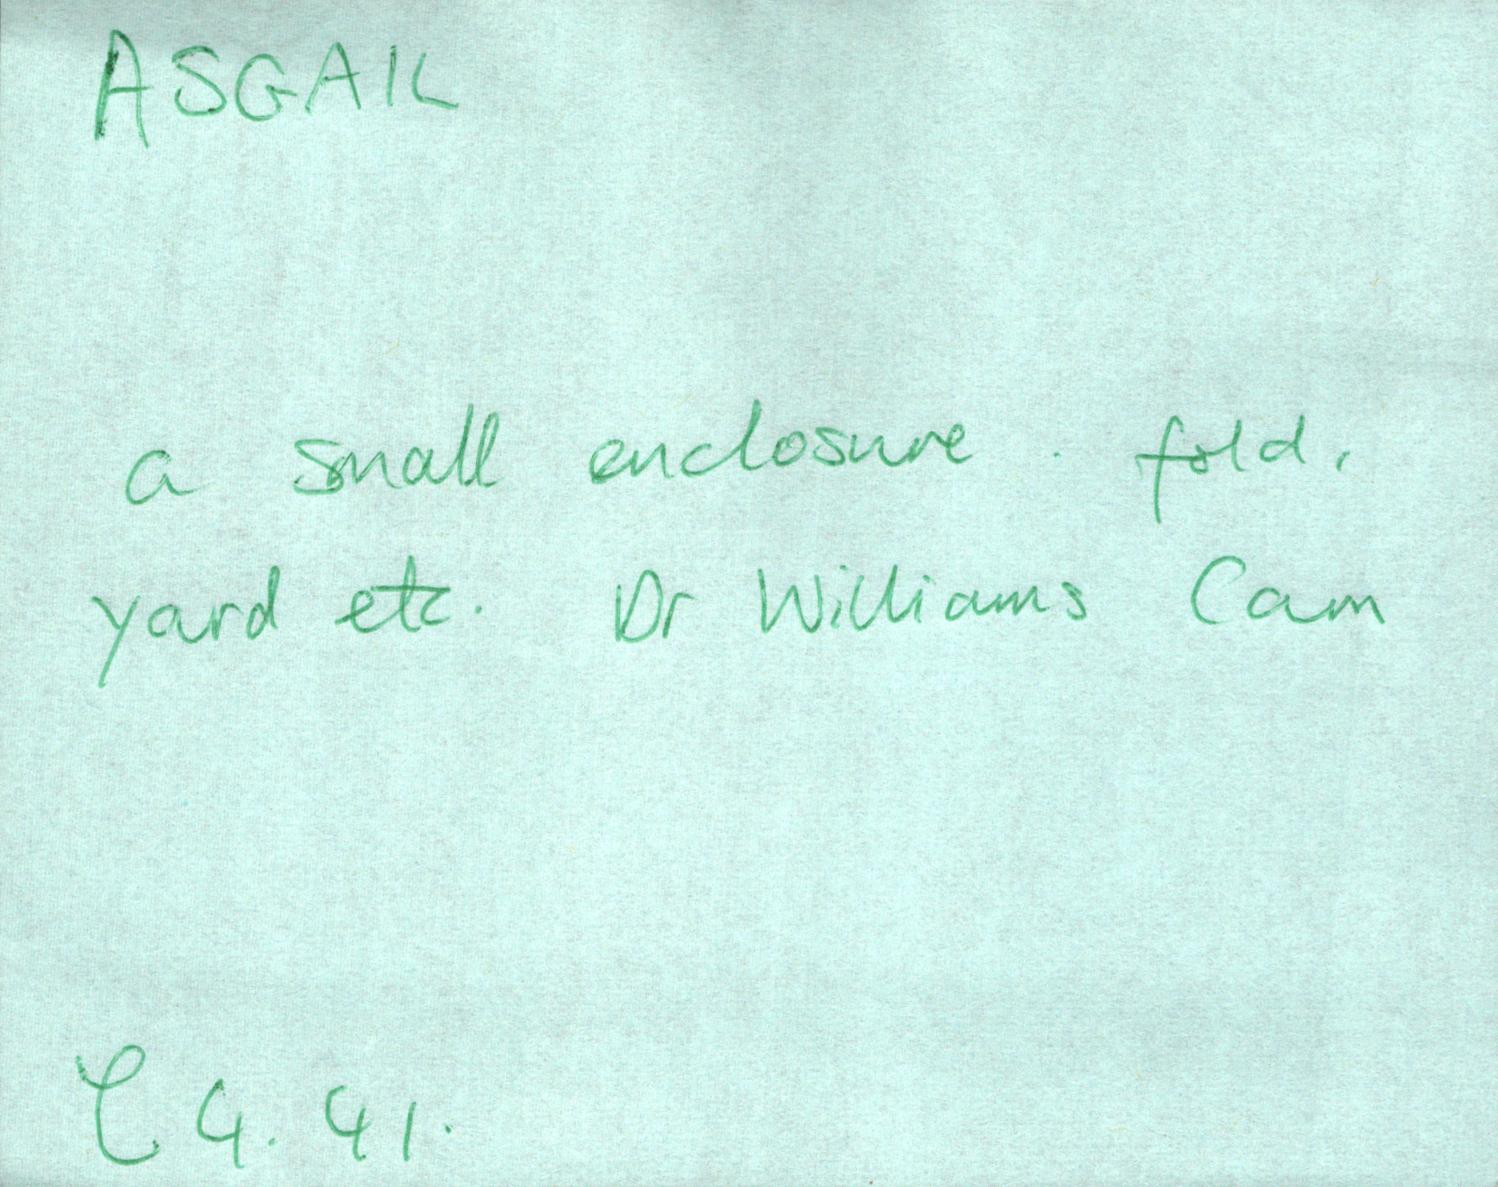 ASGAIL
a small enclosure. fold,
yard etc. Dr Williams Cam
4. 41.